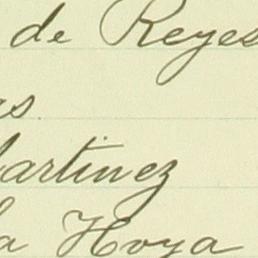 de Reyes
as
Martinez
la Hoya